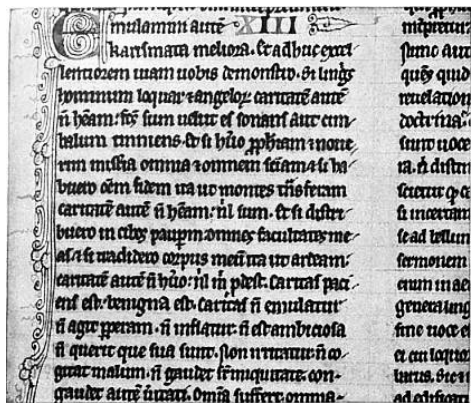 Emulamini autē XIII
karismata meliora. Et adhuc excel
lentiorem uiam uobis demonstro. Si lingis
hominum loquar ⁊ angeloꝝ caritatē autē
n̄ hēam: fcs̄ sum uelut es sonans aut cim
balum tinniens. Et si hūo ꝓphiam ⁊ noue
rim misteria omnia ⁊ omnem sciam ⁊ si ha
buero oēm fidem ita ut montes tn̄sferam
caritatē autē n̄ hēam: nl̄ sum. Et si distri
buero in cibos pauꝑm omnes facultates me
as ⁊ si tradidero corpus meū ita ut ardeam:
caritatē autē n̄ hūo: nl̄ m̄ ꝓdest. Caritas paci
ens est. benigna est. Caritas n̄ emulatur
n̄ agit ꝑperam. n̄ inflatur. n̄ est ambiciosa
n̄ querit que sua sunt. Non irritatur. n̄ co
gitat malum. n̄ gaudet sr̄ iniquitate. con
gaudet autē ūitati. Omīa suffert. omnia
sunc aut
reuelation
doctrina.
sunt uoce
ra. n̄ distin
si incertam
se ad bellum
sermonem
enim in ae
genera ling
sine uoce e
et cui loquo
barus. Sic u
ad edificati